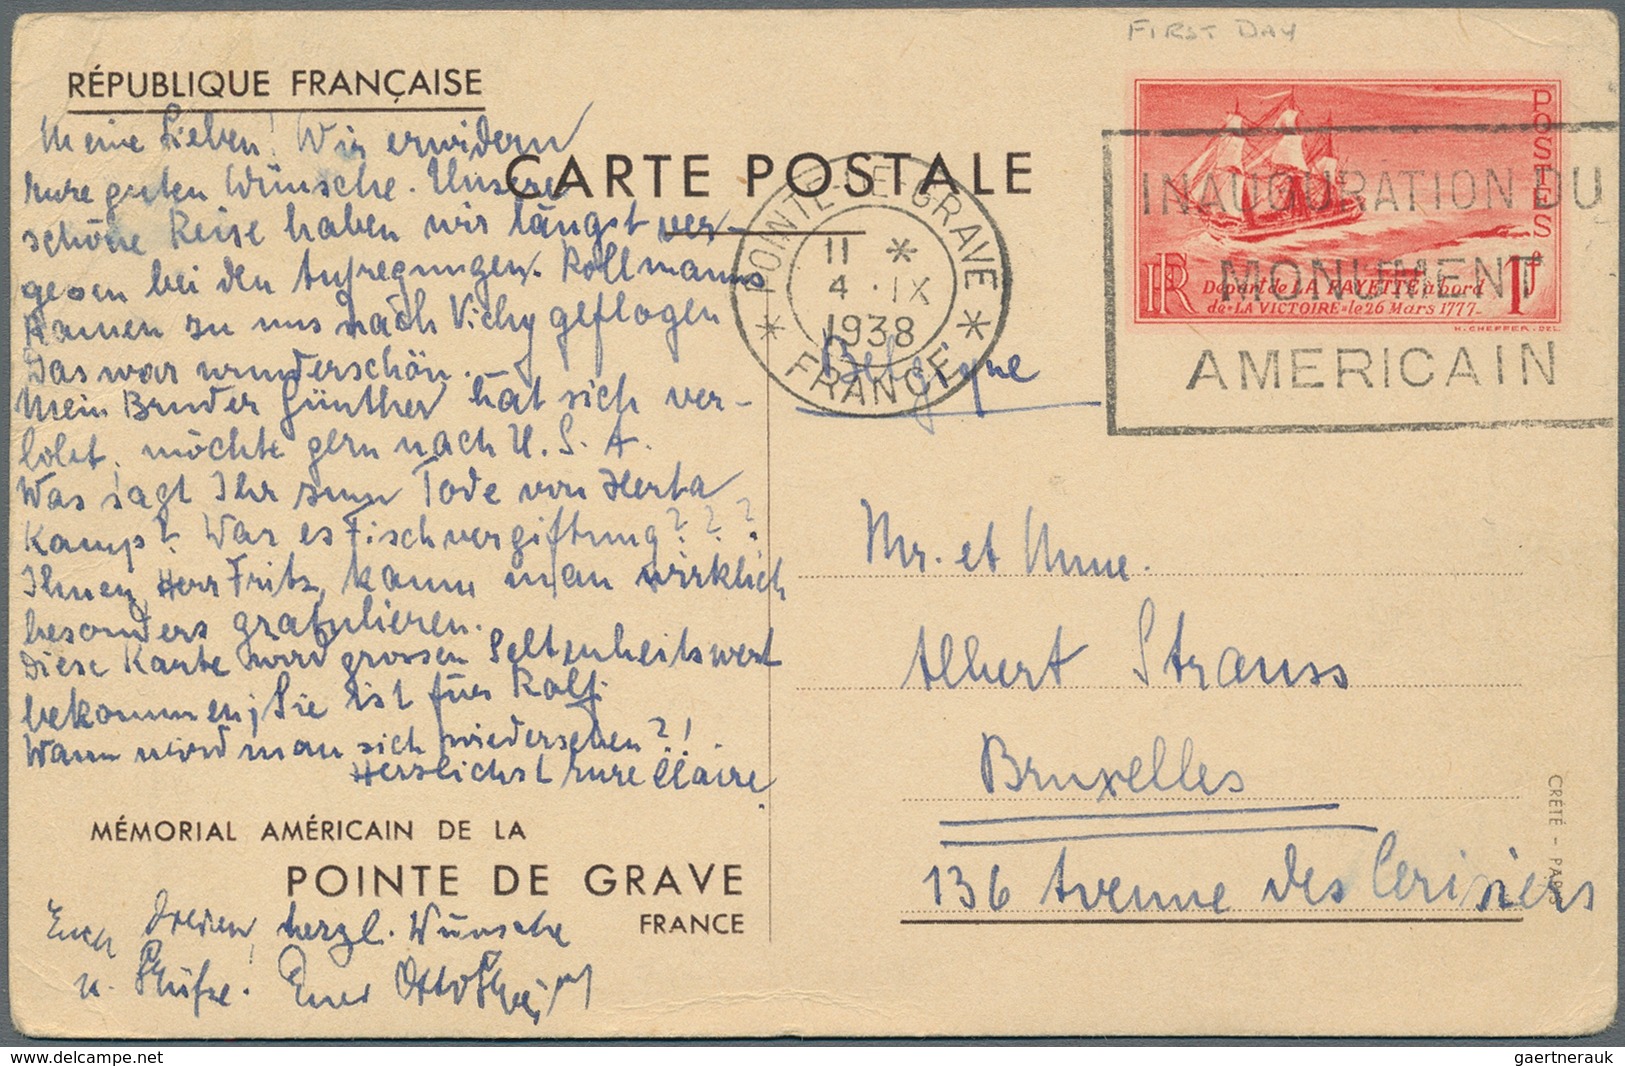 FIRST DAY
RÉPUBLIQUE FRANÇAISE
CARTE POSTALE
Meine Lieben! Wir erwidern
Eure guten Wünsche. Unsere
schöne Reise haben wir längst ver-
gessen bei den Aufregungen. Rollmanns
kamen zu uns nach Vichy geflogen
Das war wunderschön.
Mein Bruder Günther hat sich ver-
lobt, möchte gern nach U.S.A.
Was sagt Ihr zum Tode von Herta
Kamp? War es Fischvergiftung???
Ihnen, Herr Fritz, kann man wirklich
besonders gratulieren.
Diese Karte wird grossen Seltenheitswert
bekommen; Sie ist für Rolf.
Wann wird man sich wiedersehen?!
Herzlichst Eure Claire
MÉMORIAL AMÉRICAIN DE LA
POINTE DE GRAVE
FRANCE
Euch Dreien, herzl. Wünsche
u. Grüße. Euer Otto
POSTES
RF
1F
Départ de LA FAYETTE à bord
de "LA VICTOIRE" le 26 Mars 1777-
H. CHEFFER. DEL.
POINTE-DE-GRAVE
11 *
4 · IX
1938
* FRANCE *
INAUGURATION DU
MONUMENT
AMERICAIN
Belgique
Mr. et Mme.
Albert Strauss
Bruxelles
136 Avenue des Cerisiers
CRÉTÉ - PARIS
Delcampe.net
gaertnerauk